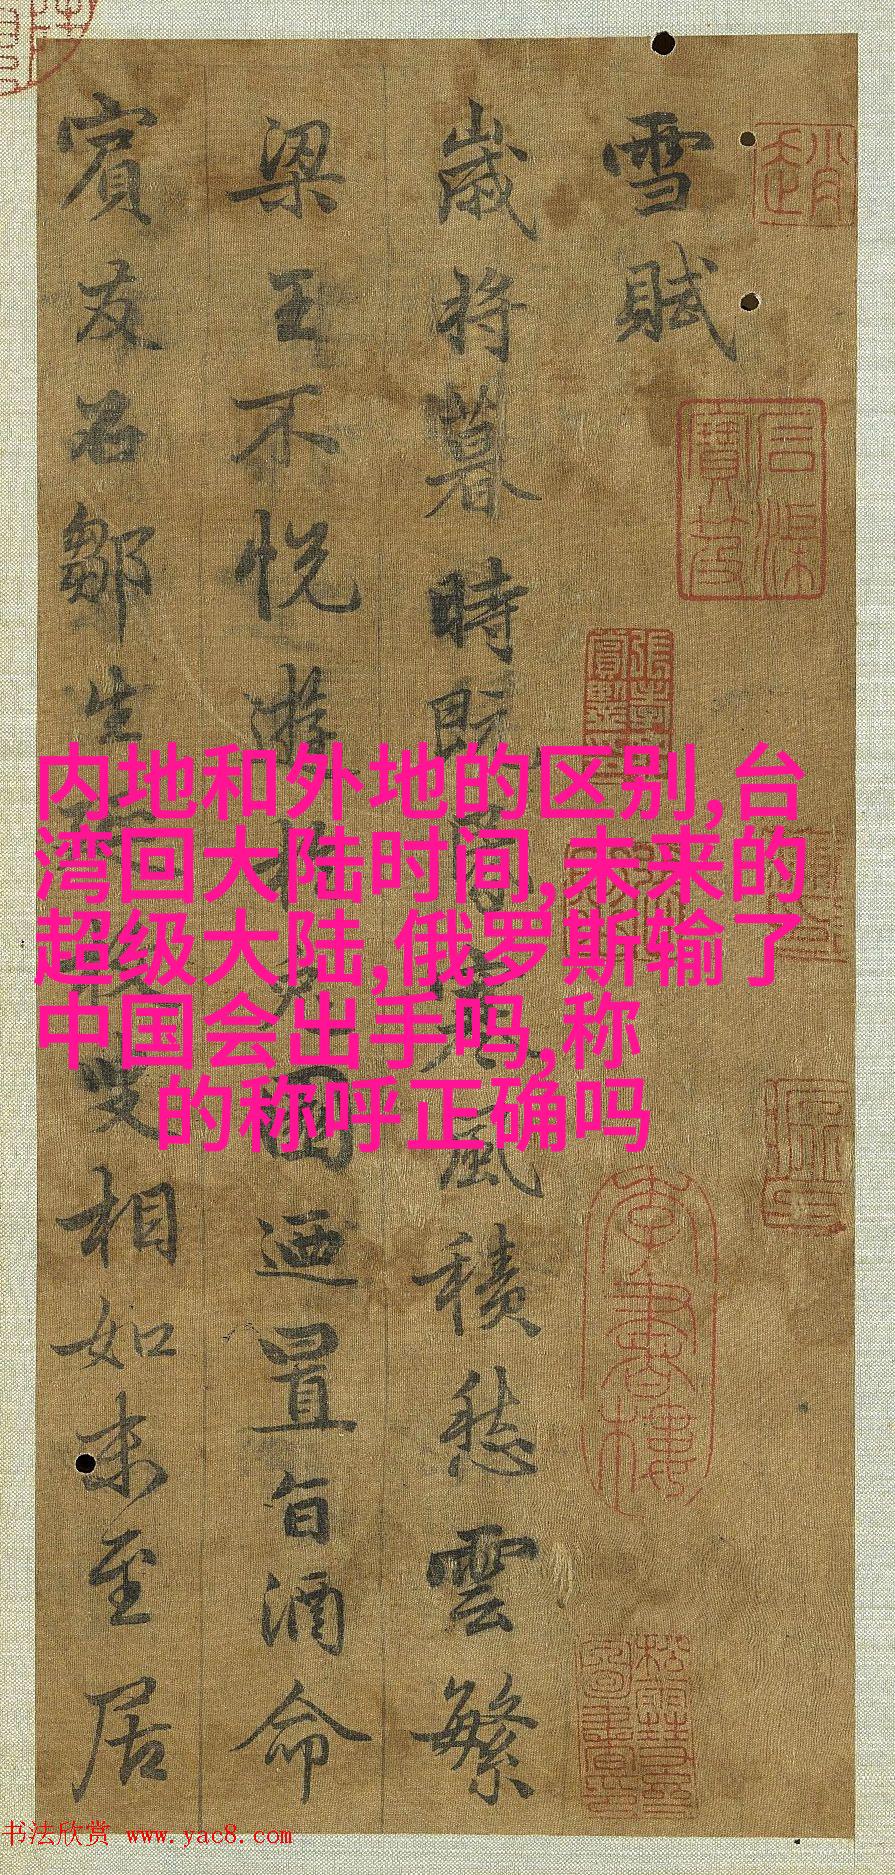 雪賦
歲將暮時既昏寒風積愁雲繁
梁王不悅遊於兔園迺置旨酒命
賓友召鄒生延枚叟相如末至居
内地和外地的区别,台
湾回大陆时间,未来的
超级大陆,俄罗斯输了
中国会出手吗,称
的称呼正确吗
书法欣赏 www.yac8.com